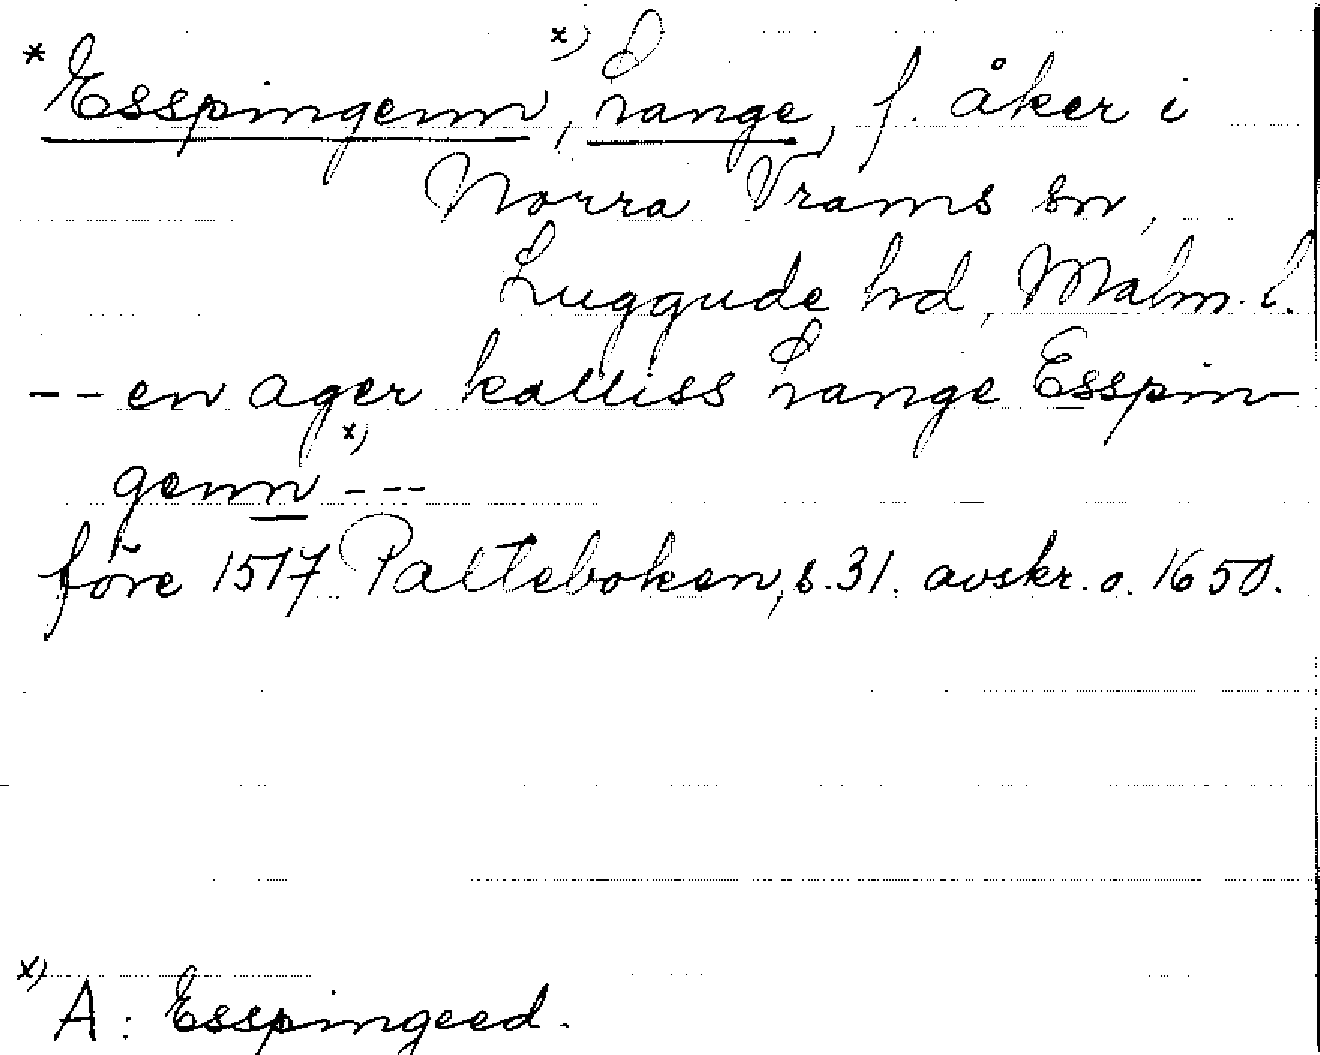 * Esspingenn, x) Lange, f. åker i
Norra Vrams sn,
Luggude hd, Malm. l.
-- en ager kalliss Lange Esspin-
genn x) ---
före 1517 Palteboken, s. 31. avskr. o. 1650.
x) A: Esspingeed.